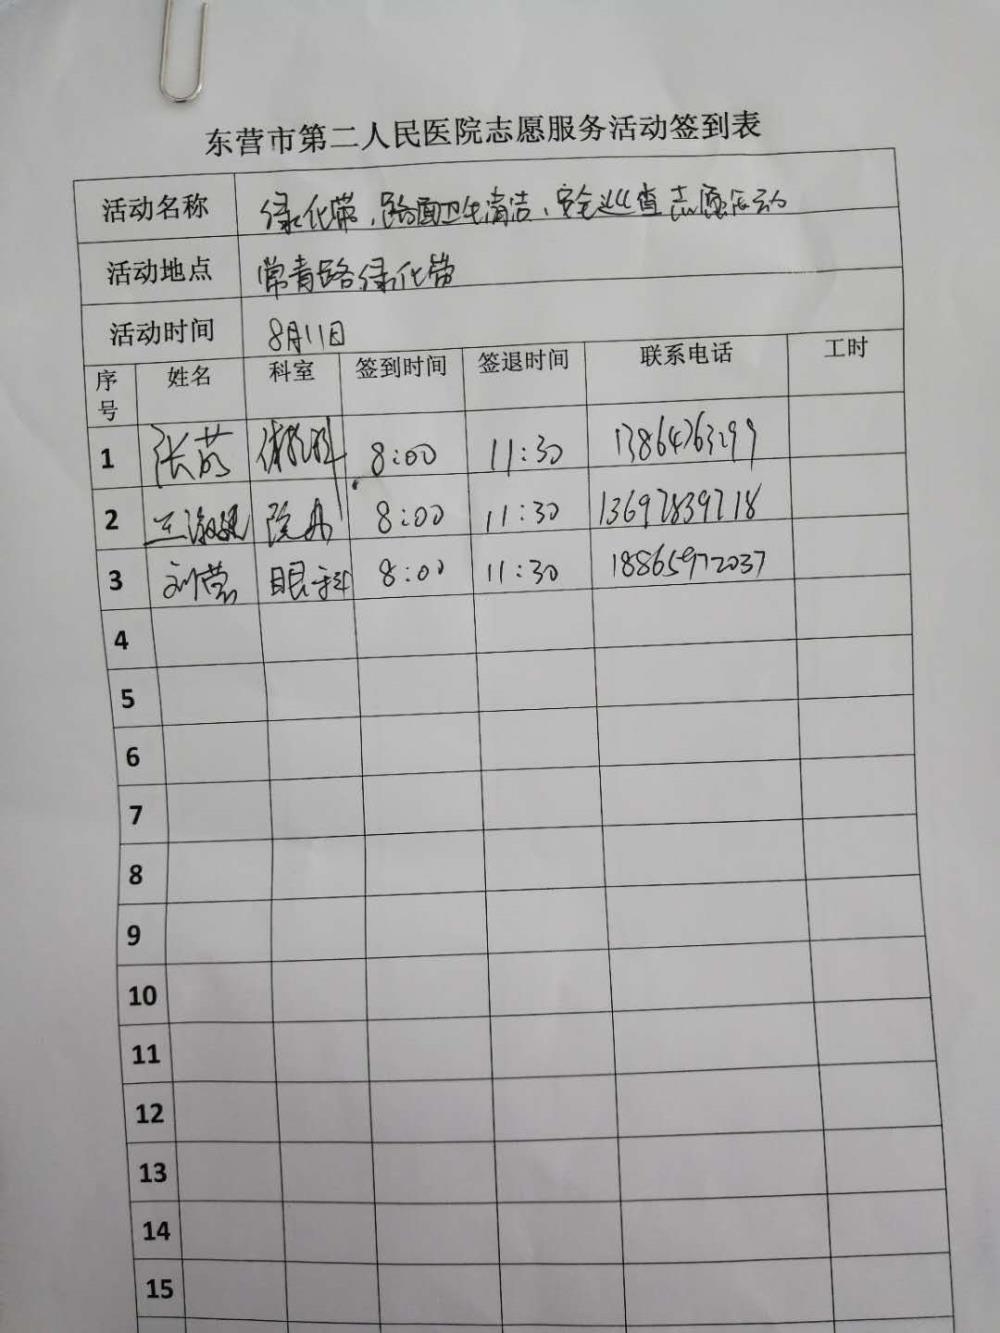 东营市第二人民医院志愿服务活动签到表
活动名称 绿化带、路面卫生清洁、安全巡查志愿活动
活动地点 常青路绿化带
活动时间 8月11日
序号 姓名 科室 签到时间 签退时间 联系电话 工时
1 张茹 8:00 11:30 13864763299
2 王淑 院办 8:00 11:30 13697839718
3 刘营 眼科 8:00 11:30 18865972037
4
5
6
7
8
9
10
11
12
13
14
15